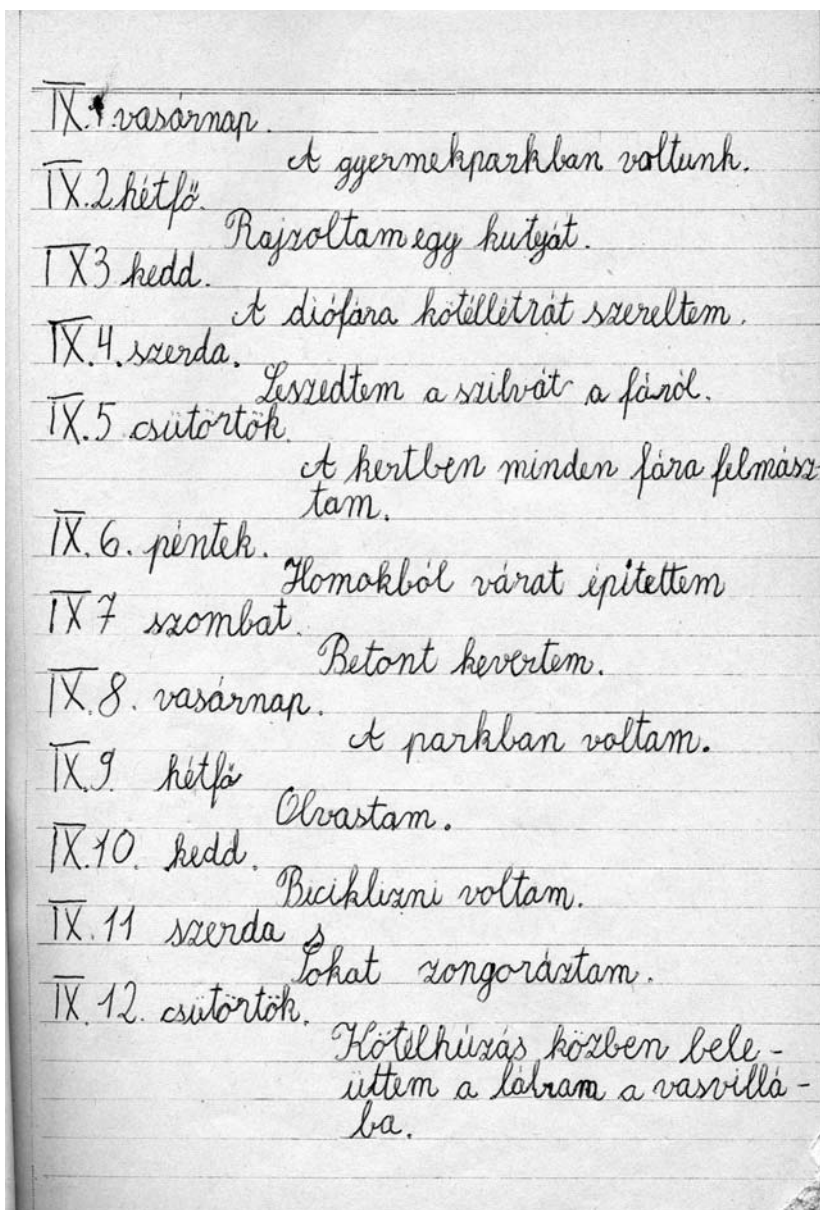 IX.1 vasárnap.
A gyermekparkban voltunk.
IX.2 hétfő.
Rajzoltam egy kutyát.
IX3 kedd.
A diófára kötéllétrát szereltem.
IX.4. szerda.
Leszedtem a szilvát a fáról.
IX.5 csütörtök.
A kertben minden fára felmász-
tam.
IX. 6. péntek.
Homokból várat építettem
IX 7 szombat.
Betont kevertem.
IX.8. vasárnap.
A parkban voltam.
IX.9. hétfő
Olvastam.
IX.10. kedd.
Biciklizni voltam.
IX.11 szerda
Sokat zongoráztam.
IX.12. csütörtök.
Kötélhúzás közben bele-
üttem a lábam a vasvillá-
ba.